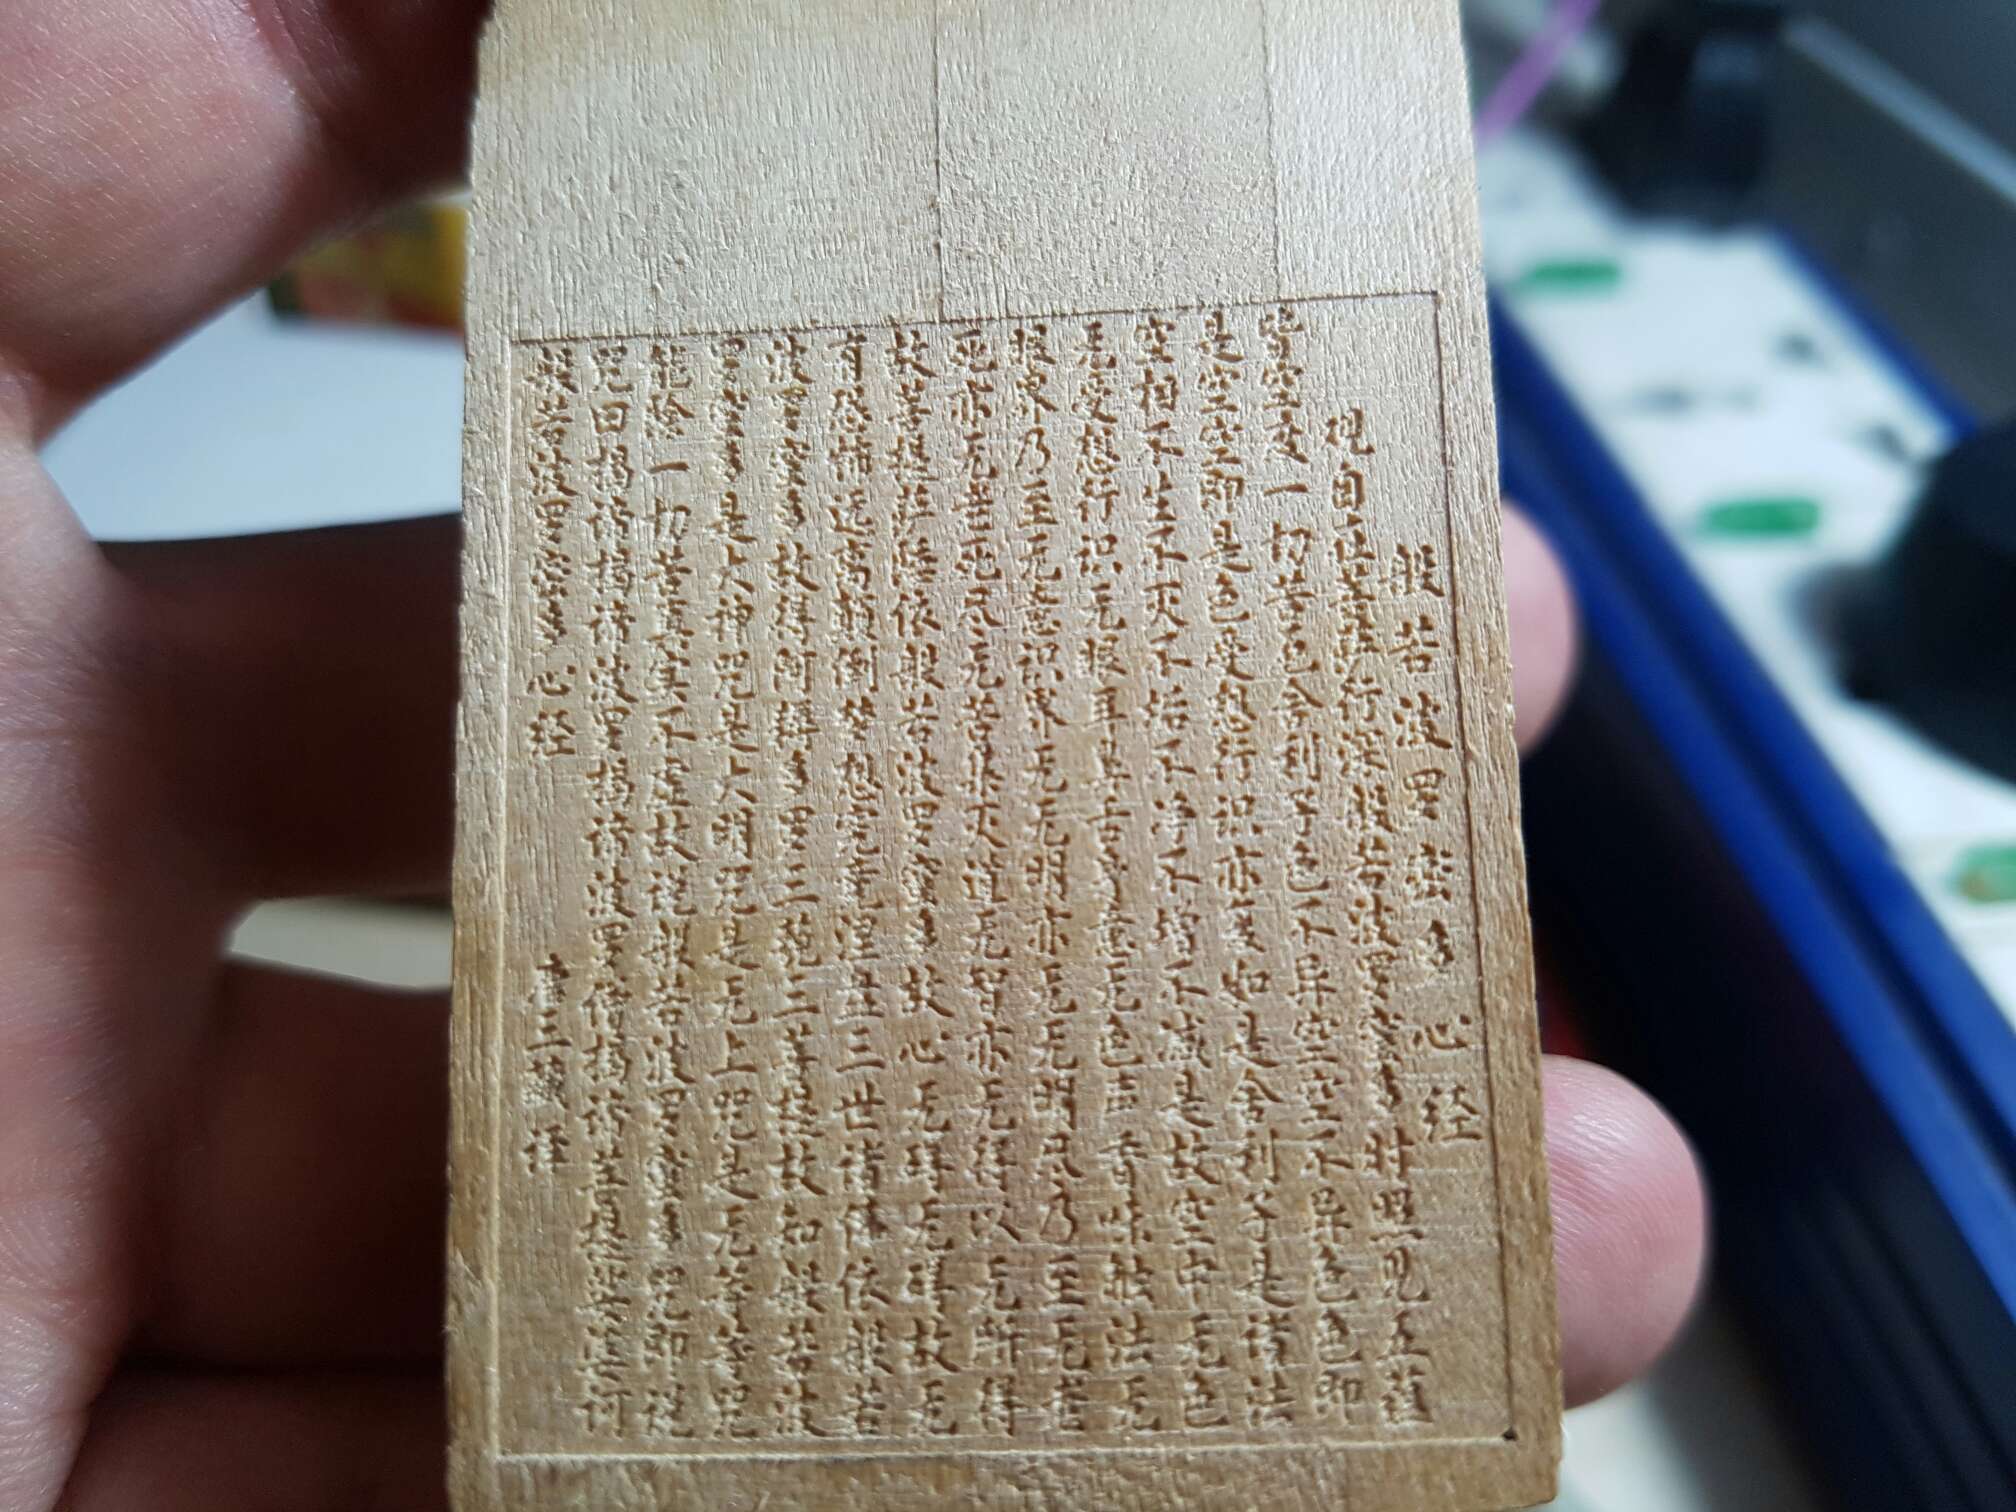 般若波罗密多心经
观自在菩萨行深般若波罗密多时照见五蕴
皆空度一切苦厄舍利子色不异空空不异色色即
是空空即是色受想行识亦复如是舍利子是诸法
空相不生不灭不垢不净不增不减是故空中无色
无受想行识无眼耳鼻舌身意无色声香味触法无
眼界乃至无意识界无无明亦无无明尽乃至无老
死亦无老死尽无苦集灭道无智亦无得以无所得
故菩提萨陲依般若波罗密多故心无碍无碍故无
有恐怖远离颠倒梦想究竟涅盘三世诸佛依般若
波罗密多故得阿耨多罗三藐三菩提故知般若波
罗密多是大神咒是大明咒是无上咒是无等等咒
能除一切苦真实不虚故说般若波罗密多咒即说
咒曰揭谛揭谛波罗揭谛波罗僧揭谛菩提萨婆诃
般若波罗密多心经 唐三藏译